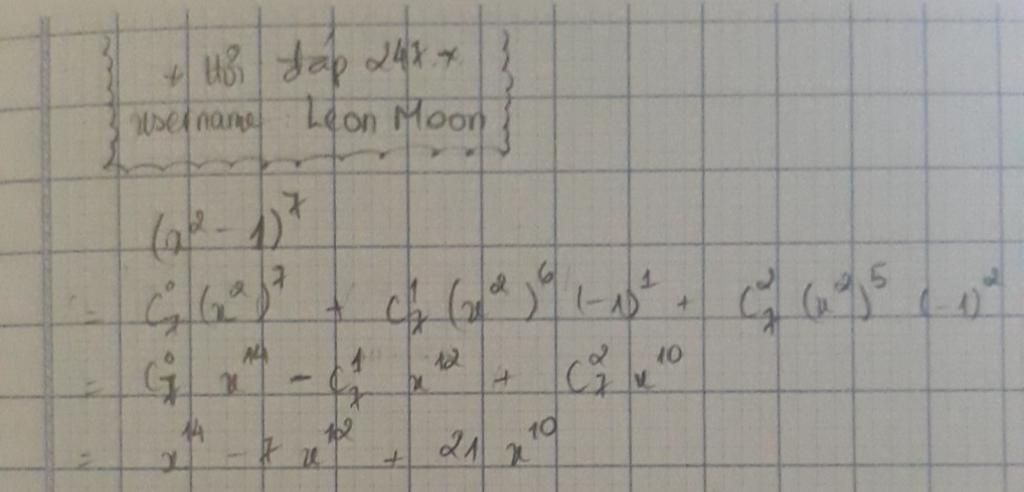 + Hỏi đáp 247 +
username Leon Moon
(x² - 1)⁷
= C₇⁰ (x²)⁷ + C₇¹ (x²)⁶ (-1)¹ + C₇² (x²)⁵ (-1)²
= C₇⁰ x¹⁴ - C₇¹ x¹² + C₇² x¹⁰
= x¹⁴ - 7 x¹² + 21 x¹⁰